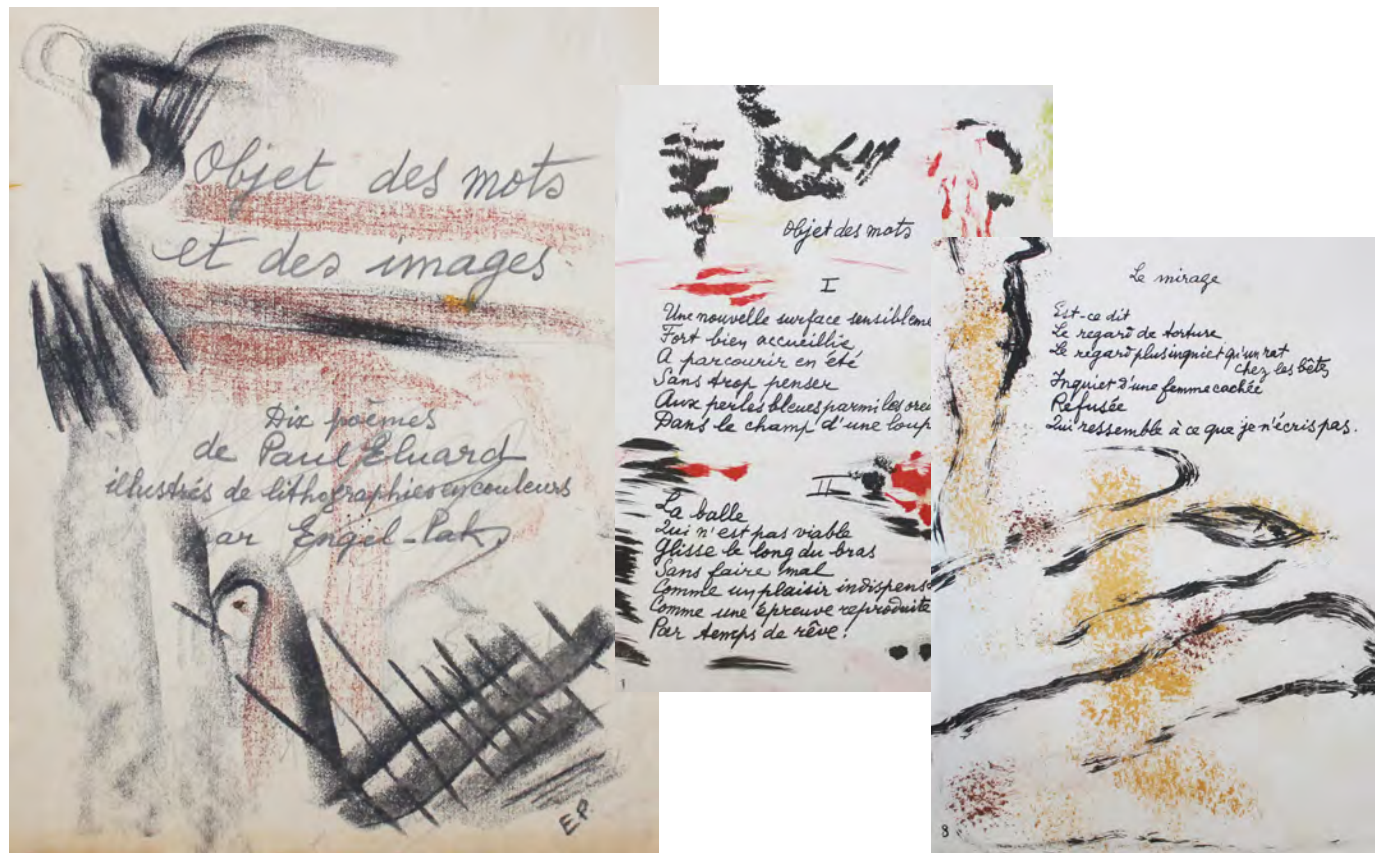 Objet des mots
et des images
Dix poèmes
de Paul Eluard
illustrés de lithographies en couleurs
par Engel-Pak
E.P.
Objet des mots
I
Une nouvelle surface sensibleme
Fort bien accueillie
A parcourir en été
Sans trop penser
Aux perles bleues parmi les ore
Dans le champ d'une loup
II
La balle
Qui n'est pas viable
Glisse le long du bras
Sans faire mal
Comme un plaisir indispens
Comme une épreuve reproduite
Par temps de rêve.
1
Le mirage
Est-ce dit
Le regard de torture
Le regard plus inquiet qu'un rat
chez les bêtes
Inquiet d'une femme cachée
Refusée
Qui ressemble à ce que je n'écris pas.
8